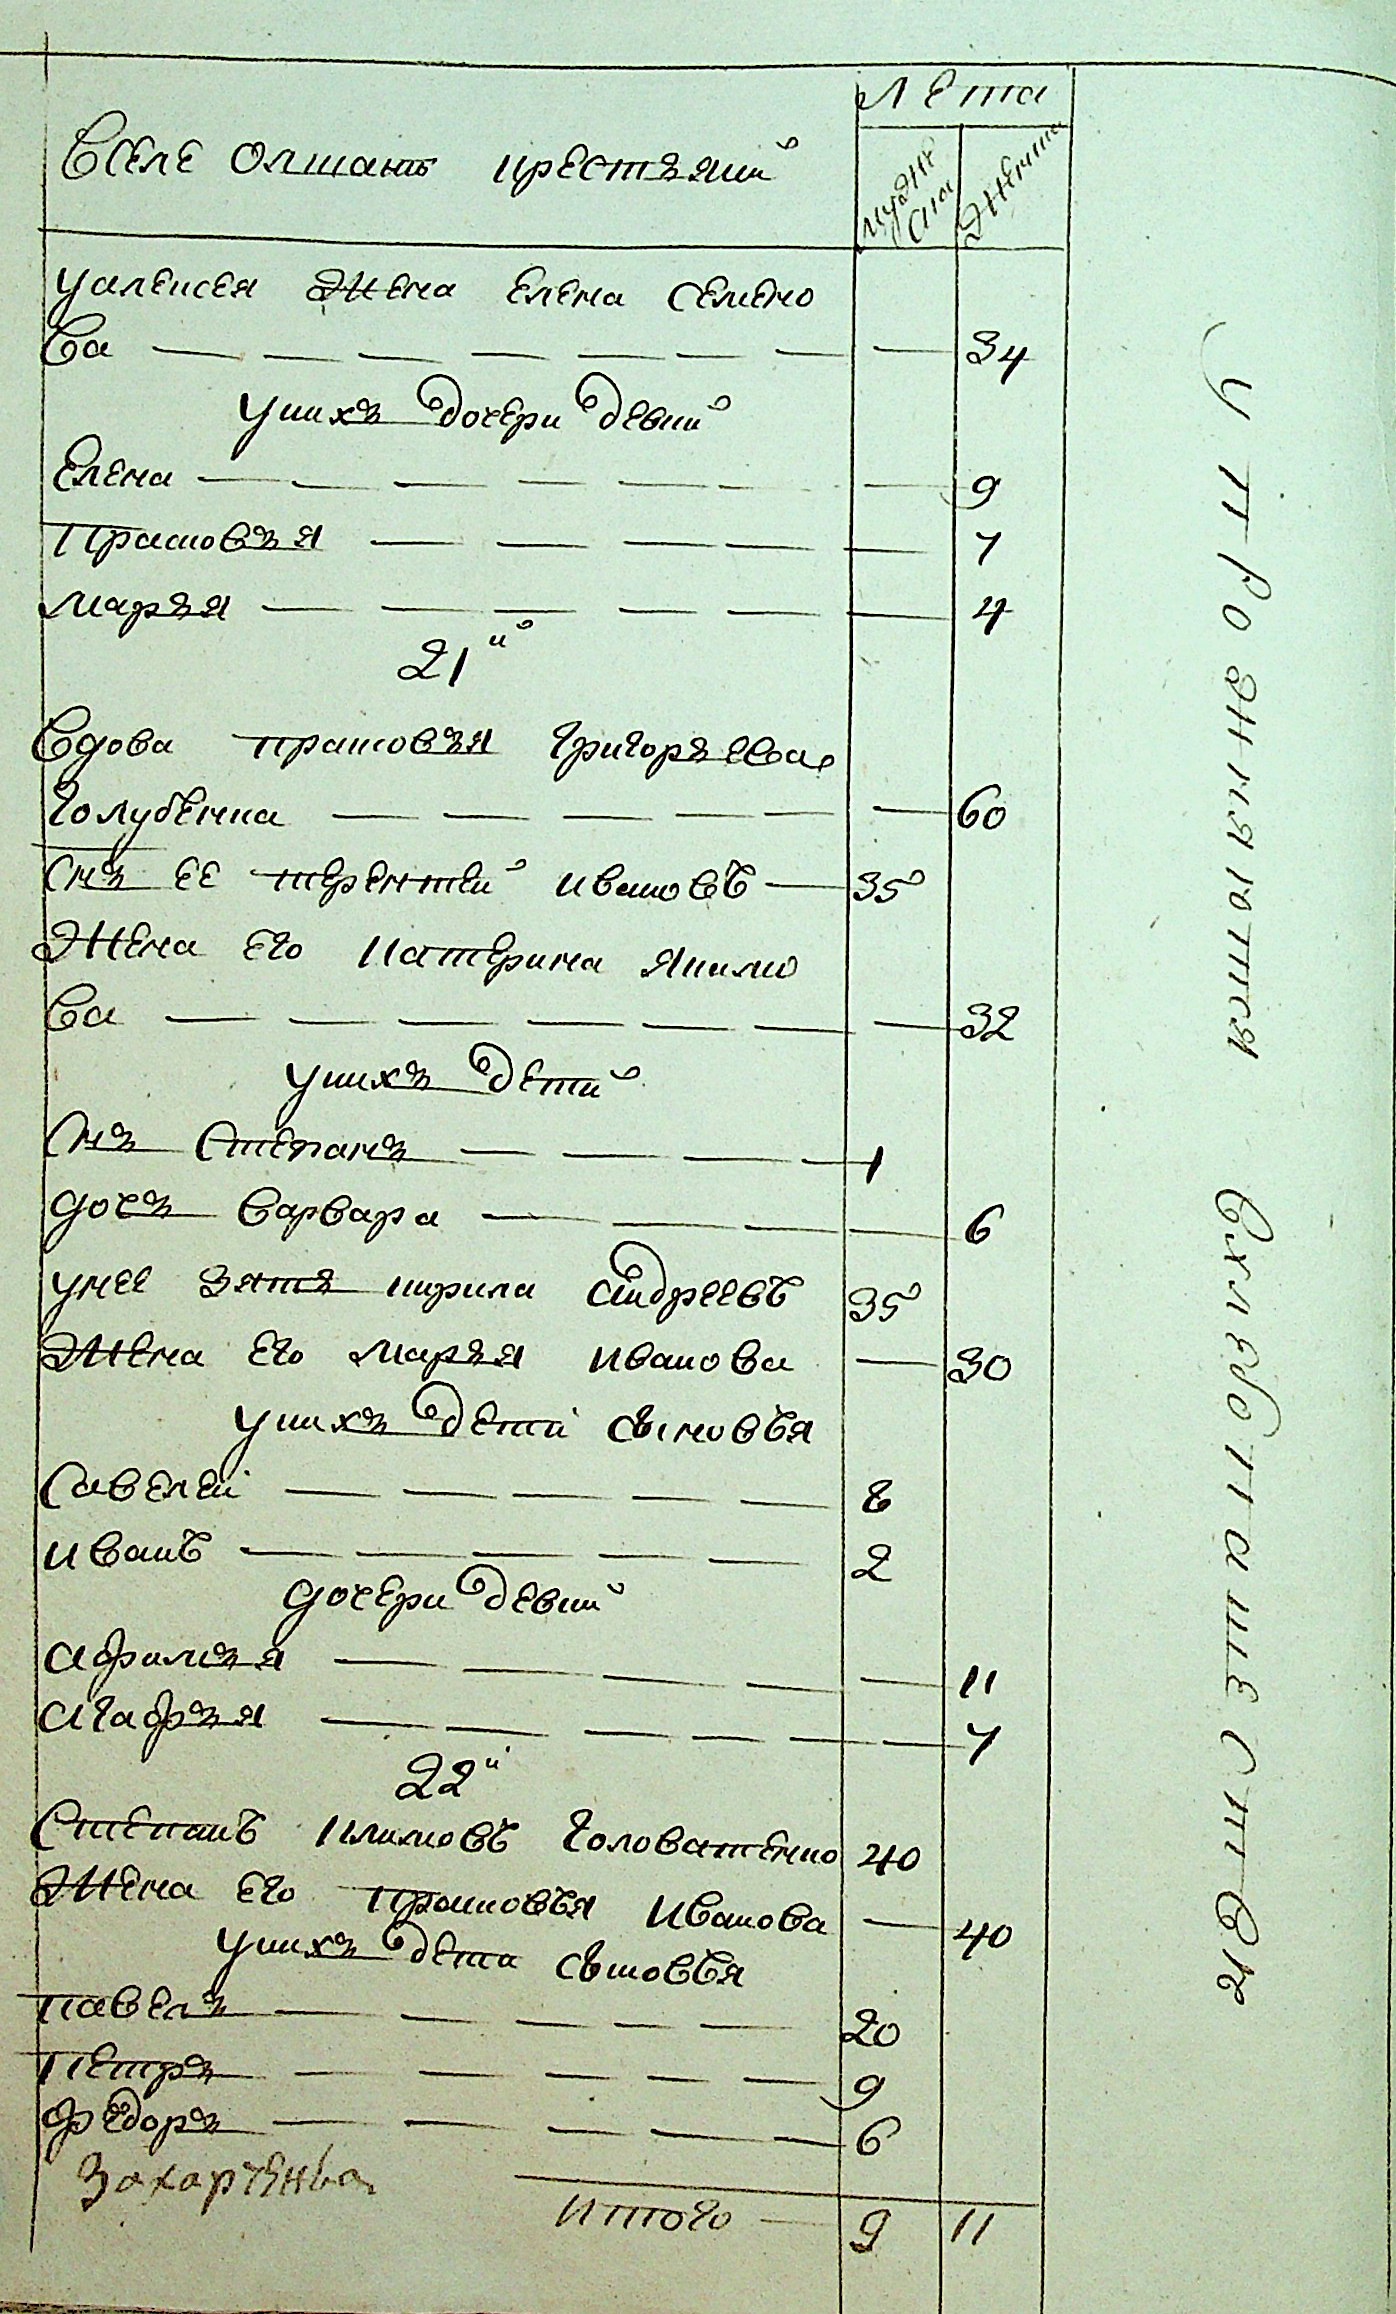 Лета
Вселе Олшанъ крестьяни
мужеска
женска
Уалексея Жена Елена Семено
ва — 34
Унихъ дочери девки
Елена — 9
Прасковья — 7
Марья — 4
21й
Вдова прасковья Григорьева
Голубенка — 60
Снъ ее терентей ивановъ — 35
Жена его катерина якимо
ва — 32
Унихъ дети
Снъ Степанъ — 1
дочь варвара — 6
унее зять кирила андреевъ 35
Жена его Марья иванова — 30
Унихъ дети сыновья
Савелей — 8
иванъ — 2
дочери девки
Афимья — 11
Агафья — 7
22й
Степанъ Климовъ Головатенко 40
Жена его прасковья Иванова — 40
Унихъ дети сыновья
павелъ — 20
петръ — 9
Федоръ — 6
итого — 9 11